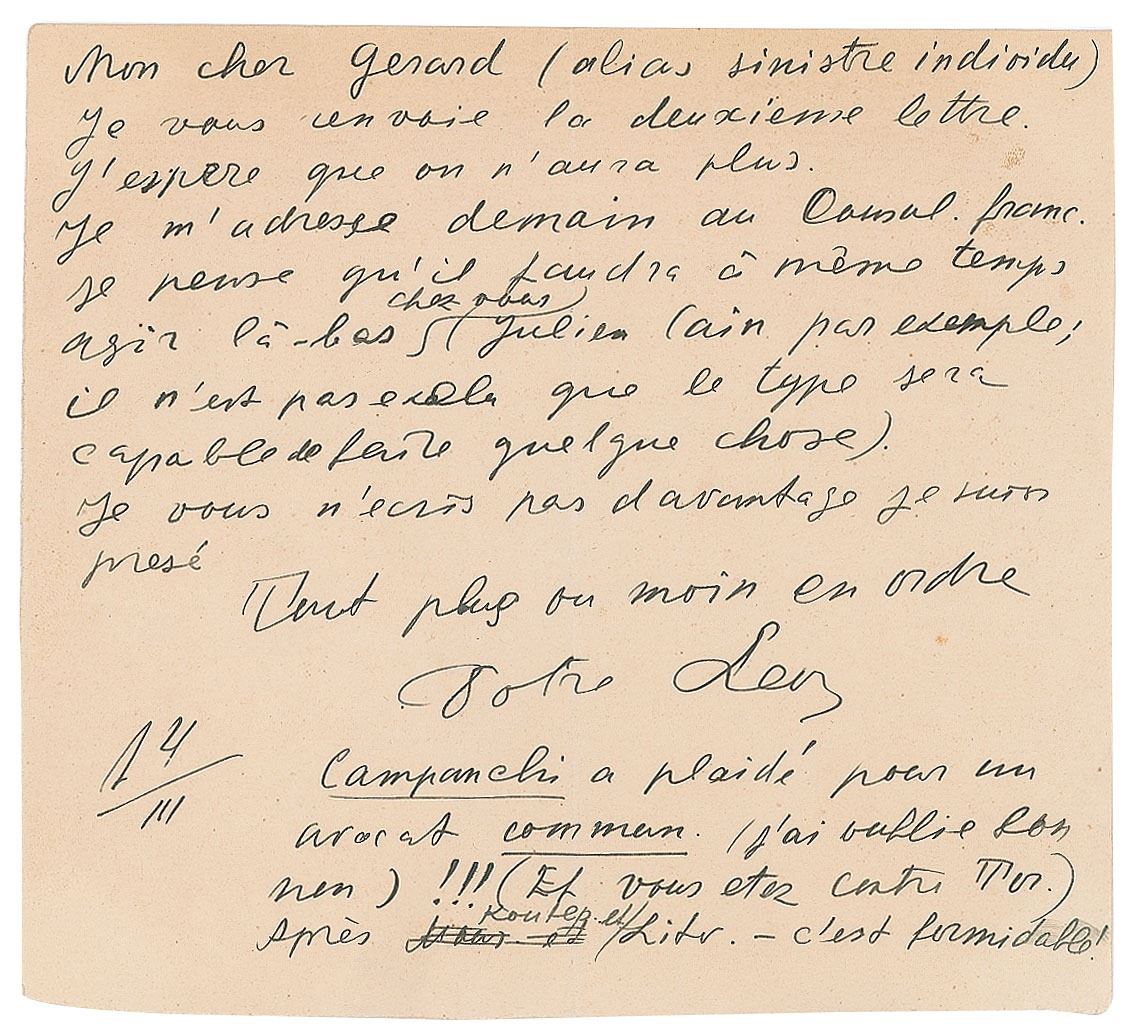 Mon cher Gerard (alias sinistre individu)
Je vous envoie la deuxieme lettre.
J'espere que on n'aura plus.
Je m'adresse demain au Consul. franc.
Je pense qu'il faudra à même temps
chez vous
agir là-bas (Julien Cain par exemple,
il n'est pas que le type sera
capable de faire quelque chose).
Je vous n'ecris pas davantage je suis
presé
Tout plus ou moin en ordre
Votre Leon
14/III
Campanchi a plaidé pour un
avocat commun. (j'ai oublie son
nen) !!! (Et vous etez contre Tor.)
Routez. et
Après Litv. – c'est formidable!